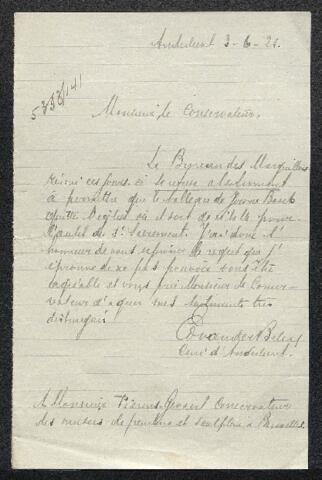 Anderlecht 3-6-21.
5737/141
Monsieur le Conservateur,
Le Bureau des Marguilliers
réuni ces jours-ci se refuse absolument
à permettre que le tableau de
quitte l'église où il sert de pour
l'autel du St Sacrement. J'ai donc l'
honneur de vous exprimer le regret que j'
éprouve de ne pas pouvoir vous être
agréable et vous prie Monsieur le Conser-
vateur d'agréer mes sentiments très
distingués.
Curé d'Anderlecht.
A Monsieur Fierens-Gevaert Conservateur
des musées de peinture et sculpture à Bruxelles.